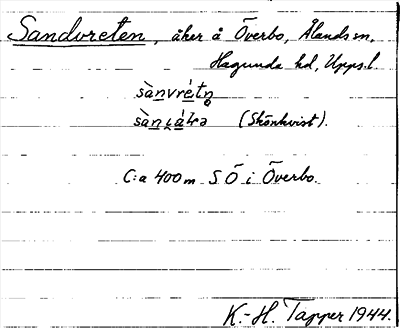 Sandvreten, åker å Överbo, Ålands sn,
Hagunda hd, Upps. l
sànvrétn̥
(Skönkvist).
C:a 400 m S Ö i Överbo.
K.-H. Tapper 1944.